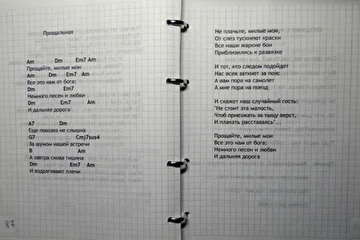 Прощальная
Am Dm Em7 Am
Прощайте, милые мои
Am Dm Em7 Am
Все это нам от бога:
Dm Em7
Немного песен и любви
Dm Em7 Am
И дальняя дорога
A7 Dm
Еще повозка не слышна
G7 Cmj7sus4
За шумом нашей встречи
B Am
А завтра снова тишина
Dm Em7 Am
И вздрагивают плечи
37
Не плачьте, милые мои,
От слез тускнеют краски
Все наши жаркие бои
Приблизились к развязке
И тот, кто следом подойдет
Нас всех заткнет за пояс
А вам пора на самолет
А мне пора на поезд
И скажет наш случайный гость:
"Не стоит эта малость,
Чтоб приезжать за тыщу верст,
И плакать расставаясь"...
Прощайте, милые мои
Все это нам от бога:
Немного песен и любви
И дальняя дорога